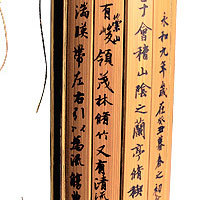 永和九年歲在癸丑暮春之初
于會稽山陰之蘭亭脩稧
有崇山峻領茂林脩竹又有清流
湍暎帶左右引以為流觴